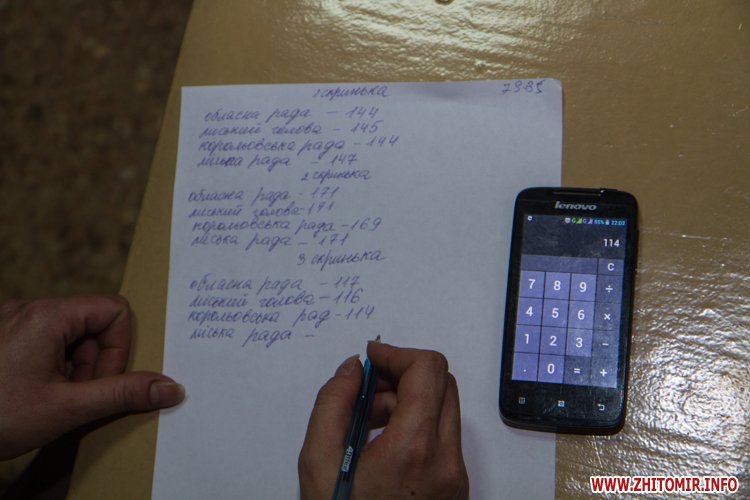 1 скринька
7985
обласна рада - 144
міський голова - 145
корольовська рада - 144
міська рада - 147
2 скринька
обласна рада - 171
міський голова - 171
корольовська рада - 169
міська рада - 171
3 скринька
обласна рада - 117
міський голова - 116
корольовська рад - 114
міська рада -
lenovo
55% 22:03
114
C
7 8 9 ÷
4 5 6 ×
1 2 3 −
. 0 = +
WWW.ZHITOMIR.INFO